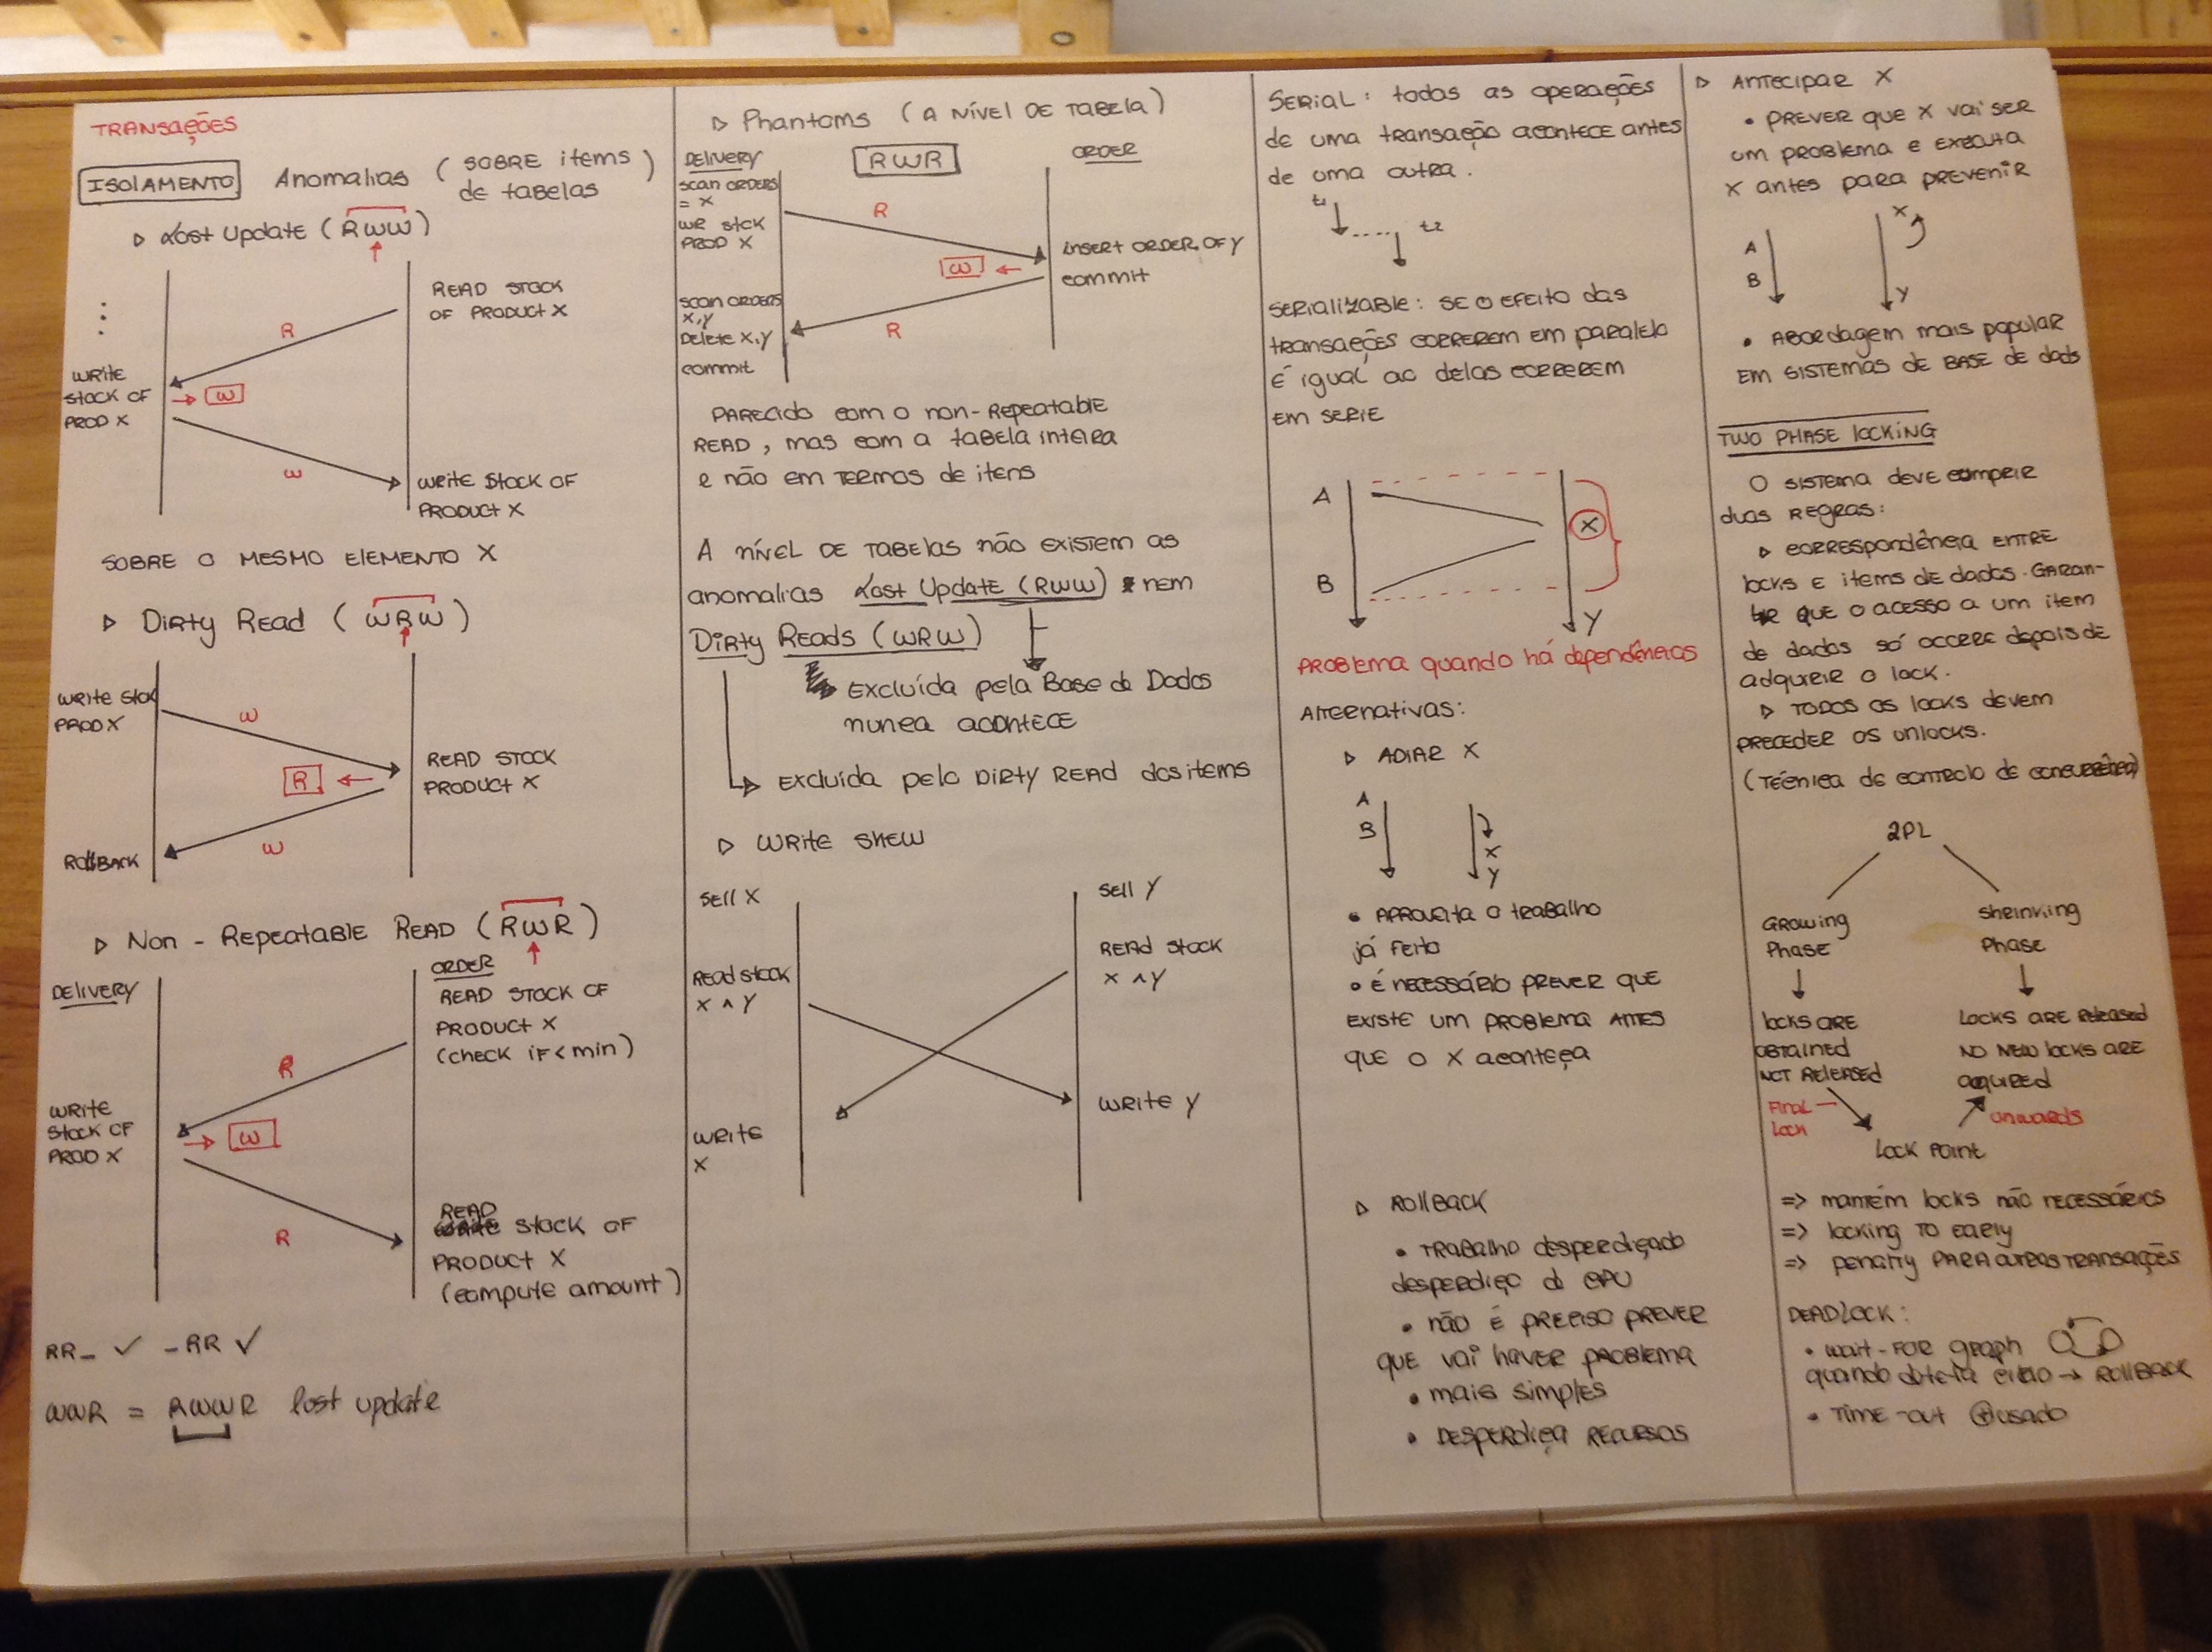 TRANSAÇÕES
ISOLAMENTO Anomalias (SOBRE items de tabelas)
▷ Lost Update (RWW)
READ STOCK
OF PRODUCT X
R
WRITE
STOCK OF
PROD X
W
W
WRITE STOCK OF
PRODUCT X
SOBRE O MESMO ELEMENTO X
▷ Dirty Read (WRW)
WRITE STOK
PROD X
W
READ STOCK
PRODUCT X
R
W
ROLLBACK
▷ Non - Repeatable READ (RWR)
DELIVERY
ORDER
READ STOCK OF
PRODUCT X
(check if < min)
R
WRITE
STOCK OF
PROD X
W
R
READ
STOCK OF
PRODUCT X
(compute amount)
RR_ ✓ _RR ✓
WWR = RWWR lost update
▷ Phantoms (A NÍVEL DE TABELA)
DELIVERY
RWR
ORDER
SCAN ORDERS
= X
WR STCK
PROD X
R
INSERT ORDER OF Y
W
commit
SCAN ORDERS
X,Y
Delete X,Y
R
commit
PARECIDO com o non-Repeatable
READ, mas com a tabela inteira
e não em termos de itens
A nível DE TABELAS não existem as
anomalias Lost Update (RWW) nem
Dirty Reads (WRW)
EXCLUÍDA pela Base de Dados
nunca acontece
EXCLUÍDA pelo DIRTY READ dos items
▷ WRITE SKEW
SELL X
SELL Y
READ STOCK
X ^ Y
READ STOCK
X ^ Y
WRITE Y
WRITE
X
SERIAL: todas as operações
de uma transação acontece antes
de uma outra.
t1
t2
SERIALIZABLE: SE O EFEITO das
transações correrem em paralelo
É igual ao delas correrem
em SERIE
A
X
B
Y
PROBLEMA quando há dependências
Alternativas:
▷ ADIAR X
A
B
X
Y
• APROVEITA O trabalho
já feito
• É necessário prever que
EXISTE UM PROBLEMA ANTES
que o X aconteça
▷ ROLLBACK
• TRABALHO desperdiçado
desperdiço de CPU
• não É PRECISO PREVER
que vai haver problema
• mais simples
• DESPERDIÇA RECURSOS
▷ ANTECIPAR X
• PREVER que X vai ser
um problema e executa
X antes para prevenir
A
B
X
Y
• ABORDAGEM mais popular
EM SISTEMAS DE BASE DE dads
TWO PHASE LOCKING
O SISTEMA DEVE cumprir
duas REGRAS:
▷ correspondência ENTRE
locks E items DE dados. GARAN-
tir que o acesso a um item
de dados só occere depois de
adquirir o lock.
▷ TODOS os locks devem
PRECEDER os unlocks.
(Técnica de controlo de concurrência)
2PL
GROWING
Phase
Shrinking
Phase
locks ARE
OBTAINED
NOT RELEASED
LOCKS ARE Released
NO NEW locks ARE
aquired
Final
lock
onwards
Lock Point
=> mantém locks não necessários
=> locking TO EARLY
=> penalty PARA OUTRAS TRANSAÇÕES
DEADLOCK:
• wait-FOR graph
quando deteta ciclo → ROLLBACK
• TIME-out ⊕usado